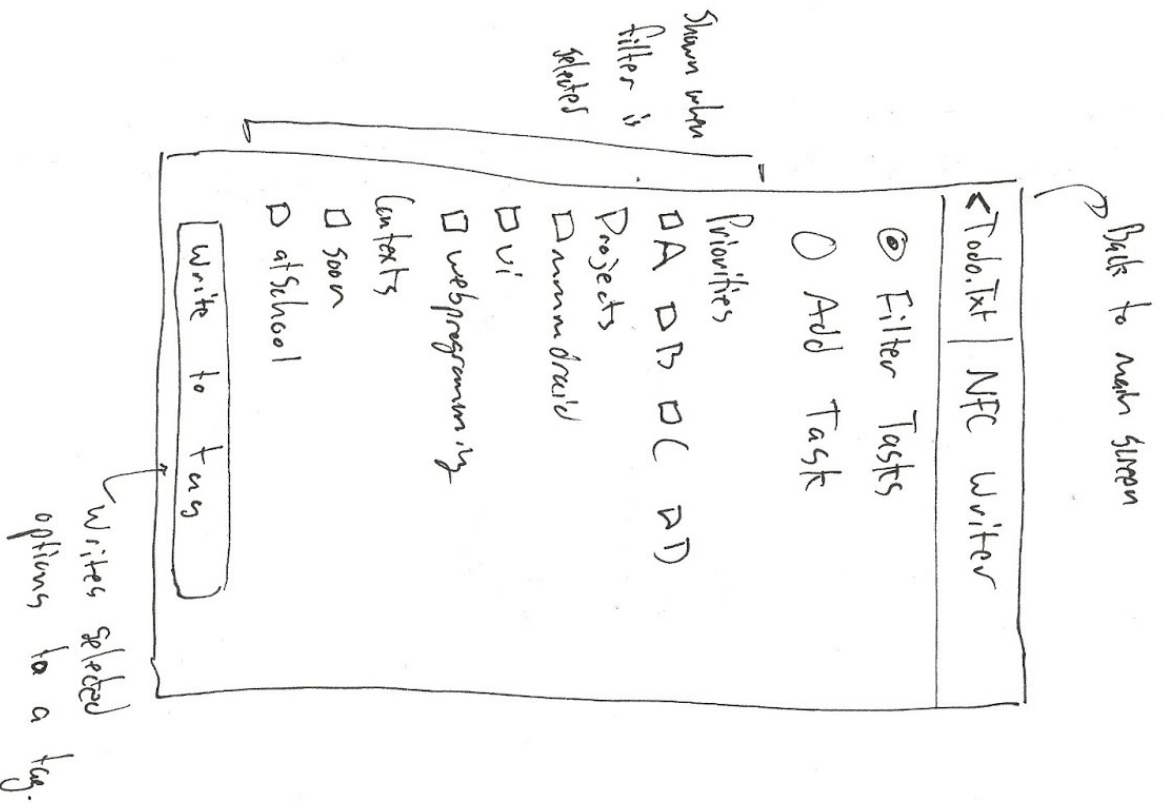 Back to main screen
<Todo.Txt | NFC Writer
Filter Tasks
Add Task
Shown when
filter is
selected
Priorities
A B C D
Projects
mmmdroid
vi
webprogramming
Contexts
soon
atSchool
Write to tag
Writes selected
options to a tag.